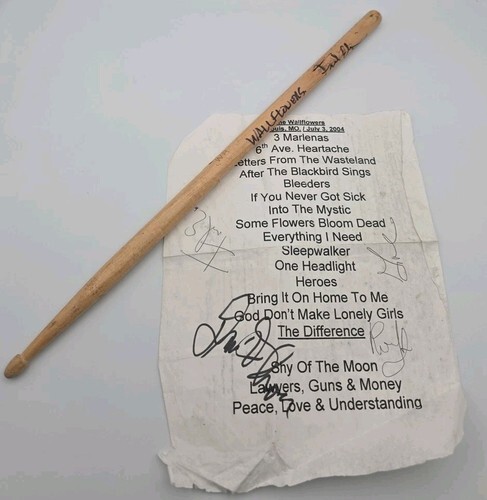 WALLFLOWERS
The Wallflowers
Louis, MO. / July 3, 2004
3 Marlenas
6th Ave. Heartache
Letters From The Wasteland
After The Blackbird Sings
Bleeders
If You Never Got Sick
Into The Mystic
Some Flowers Bloom Dead
Everything I Need
Sleepwalker
One Headlight
Heroes
Bring It On Home To Me
God Don't Make Lonely Girls
The Difference
Shy Of The Moon
Lawyers, Guns & Money
Peace, Love & Understanding